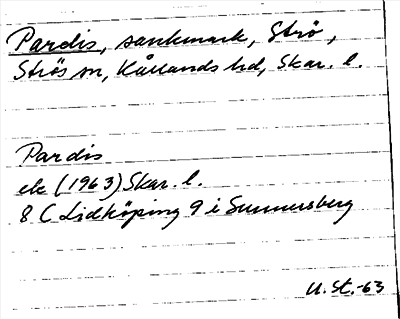 Pardis, sankmark, Strö,
Strös sn, Kållands hd, Skar. l.
Pardis
ek (1963) Skar. l.
8 C Lidköping 9 i Sunnersberg
U. St.-63